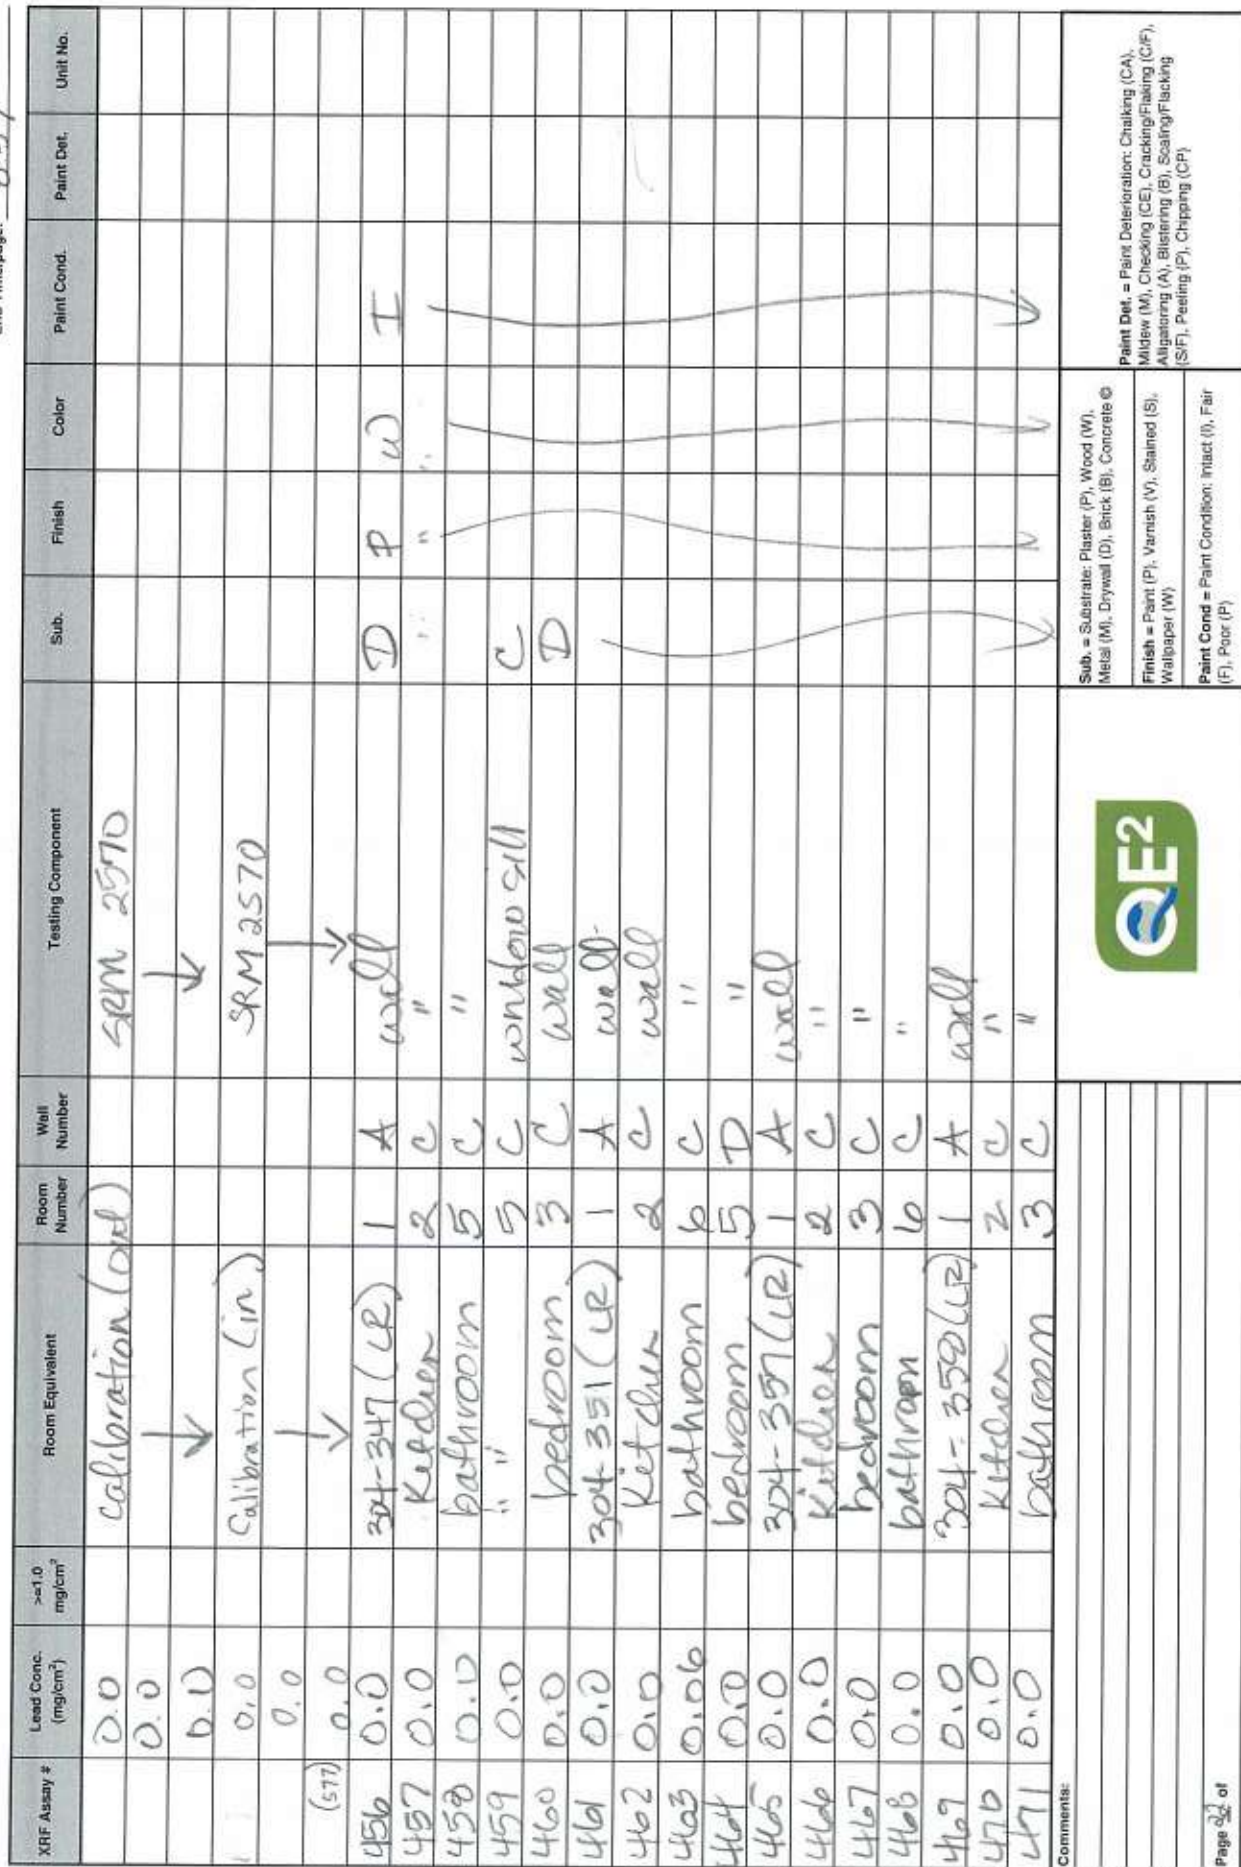 XRF Assay # Lead Conc. (mg/cm²) >=1.0 mg/cm² Room Equivalent Room Number Wall Number Testing Component Sub. Finish Color Paint Cond. Paint Det. Unit No.
0.0 Calibration (out) SRM 2570
0.0
0.0
0.0 Calibration (in) SRM 2570
0.0
(577) 0.0
456 0.0 304-347 (LR) 1 A wall D P W I
457 0.0 Kitchen 2 C " " " "
458 0.0 bathroom 5 C "
459 0.0 " " 5 C window sill C
460 0.0 bedroom 3 C wall D
461 0.0 304-351 (LR) 1 A wall
462 0.0 Kitchen 2 C wall
463 0.06 bathroom 6 C "
464 0.0 bedroom 5 D "
465 0.0 304-357 (LR) 1 A wall
466 0.0 Kitchen 2 C "
467 0.0 bedroom 3 C "
468 0.0 bathroom 6 C "
469 0.0 304-358 (LR) 1 A wall
470 0.0 Kitchen 2 C "
471 0.0 bathroom 3 C "
Comments:
Page of
QE²
Sub. = Substrate: Plaster (P), Wood (W),
Metal (M), Drywall (D), Brick (B), Concrete ©
Finish = Paint (P), Varnish (V), Stained (S),
Wallpaper (W)
Paint Cond = Paint Condition: Intact (I), Fair
(F), Poor (P)
Paint Det. = Paint Deterioration: Chalking (CA),
Mildew (M), Checking (CE), Cracking/Flaking (C/F),
Alligatoring (A), Blistering (B), Scaling/Flacking
(S/F), Peeling (P), Chipping (CP)